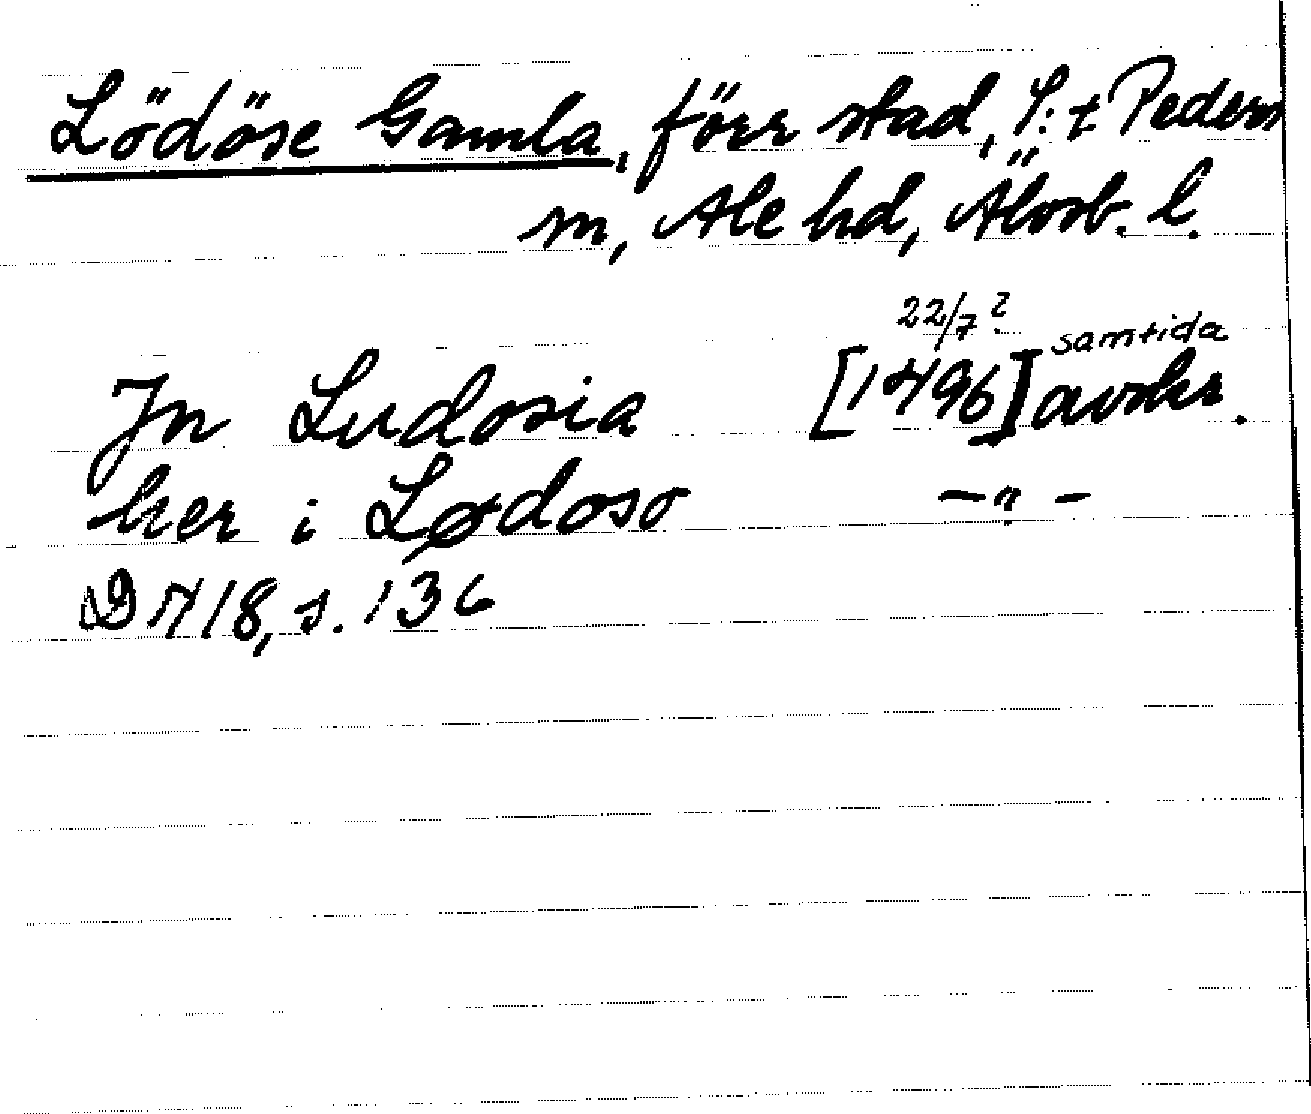 Lödöse Gamla, förr stad, S:t Peders
m, Ale hd, Älvsb. l.
22/7 ?
In Ludosia [1496] samtida avskr.
her i Lødoso —"—
D 418, s. 136